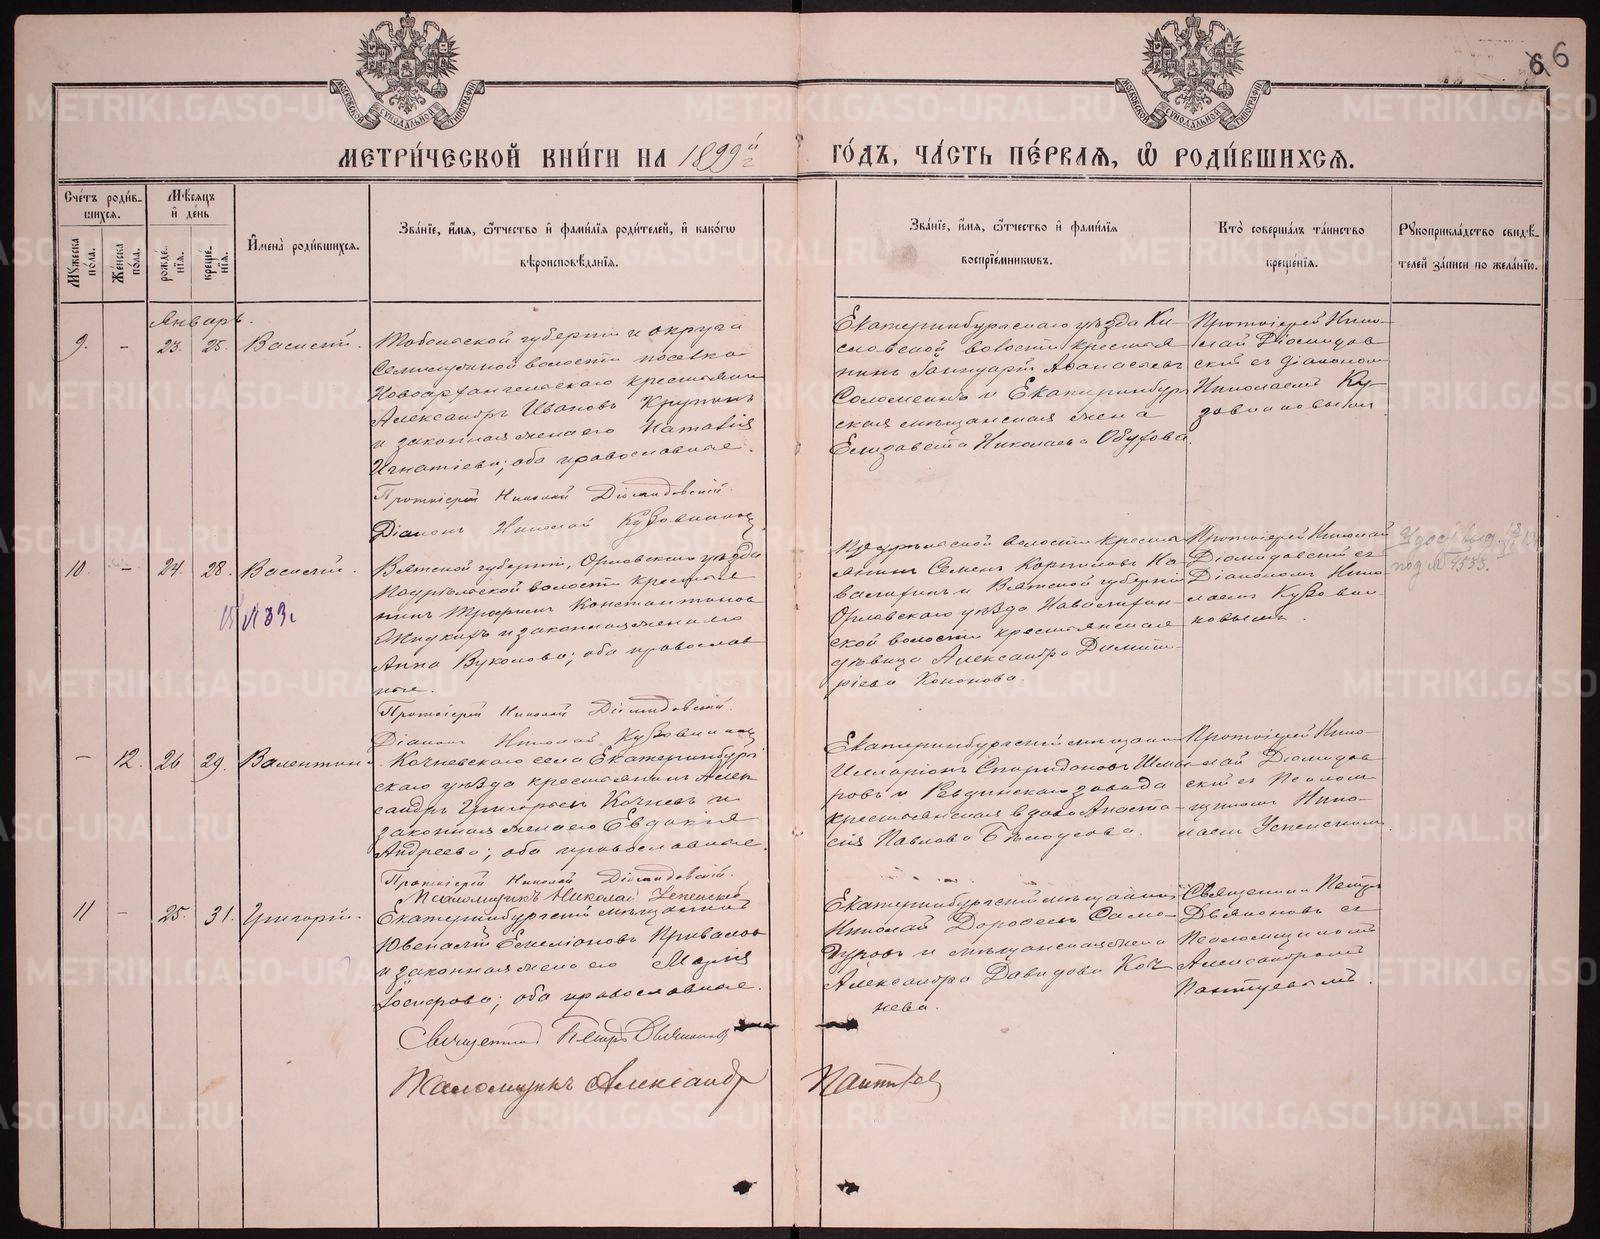 МЕТРИ́ЧЕСКОЙ КНИ́ГИ НА 1899 й г
ГО́ДЪ, ЧА́СТЬ ПЕ́РВАЯ, Ѡ РОДИ́ВШИХСЯ.
6 6
МОСКОВСКОЙ СѴНОДАЛЬНОЙ ТИПОГРАФІИ
МОСКОВСКОЙ СѴНОДАЛЬНОЙ ТИПОГРАФІИ
Сче́тъ роди́в-
шихся.
Мѣсяцъ
и҆ де́нь
Мꙋ́жеска по́ла.
Же́нска по́ла.
рожде́-
нїя.
креще́-
нїя.
И҆мена̀ роди́вшихся.
Зва́нїе, и҆́мя, ѻ҆́тчество и҆ фами́лїя роди́телей, и҆ како́гѡ
вѣроисповѣ́данїя.
Зва́нїе, и҆́мя, ѻ҆́тчество и҆ фами́лїя
воспрїе́мникѡвъ.
Кто̀ соверша́лъ та́инство
креще́нїя.
Рꙋкоприкла́дство свидѣ́-
телей за́писи по жела́нїю.
Январь.
9. - 23. 25. Василій.
Тобольской губерніи и округа
Семилужной волости поселка
Новоархангельскаго крестьянинъ
Александръ Ивановъ Крупинъ
и законная жена его Наталія
Игнатіева; оба православные.
Протоіерей Николай Діомидовскій.
Діаконъ Николай Кузовниковъ
Екатеринбургскаго уѣзда Ки-
словской волости крестья
нинъ Іаннуарій Аѳанасьевъ
Соломеинъ и Екатеринбург
ская мѣщанская жена
Елизавета Николаева Обухова.
Протоіерей Нико-
лай Діомидов
скій съ діакономъ
Николаемъ Ку-
зовниковымъ
10. - 24. 28. Василій.
Вятской губерніи, Орловскаго уѣзда
волости крестья
нинъ Трофимъ Константиновъ
и законная жена его
Анна Вуколова; оба православ
ные.
Протоіерей Николай Діомидовскій.
Діаконъ Николай Кузовниковъ
волости крестья
янинъ Семенъ Корниловъ
и Вятской губерніи
Орловскаго уѣзда
ской волости крестьянская
дѣвица Александра Димит-
ріева Кононова.
Протоіерей Николай
Діомидовскій съ
Діакономъ Нико-
лаемъ Кузовни-
ковымъ.
под № 4555.
- 12. 26 29. Валентина.
Кочневскаго села Екатеринбург
скаго уѣзда крестьянинъ Алек
сандръ Григорьевъ Кочневъ и
законная жена его Евдокія
Андреева; оба православные.
Протоіерей Николай Діомидовскій.
Псаломщикъ Николай Успенскій
Екатеринбургскій мѣщанинъ
Илларіонъ Спиридоновъ
и Ревдинскаго завода
крестьянская вдова Анаста-
сія Павлова Бѣлоусова.
Протоіерей Нико-
лай Діомидов
скій съ Псалом
щикомъ Нико-
лаемъ Успенскимъ
11 - 25. 31. Григорій.
Екатеринбургскій мѣщанинъ
Ювеналій Емеліановъ Приваловъ
и законная жена его Марія
Іосифова; оба православные.
Священникъ Петръ Дьяконовъ
Псаломщикъ Александръ Пантуевъ
Екатеринбургскій мѣщанинъ
Николай Дороѳеевъ Само-
дуровъ и мѣщанская жена
Александра Давидова Коч-
нева.
Священникъ Петръ
Дьяконовъ съ
Псаломщикомъ
Александромъ
Пантуевымъ.
METRIKI.GASO-URAL.RU